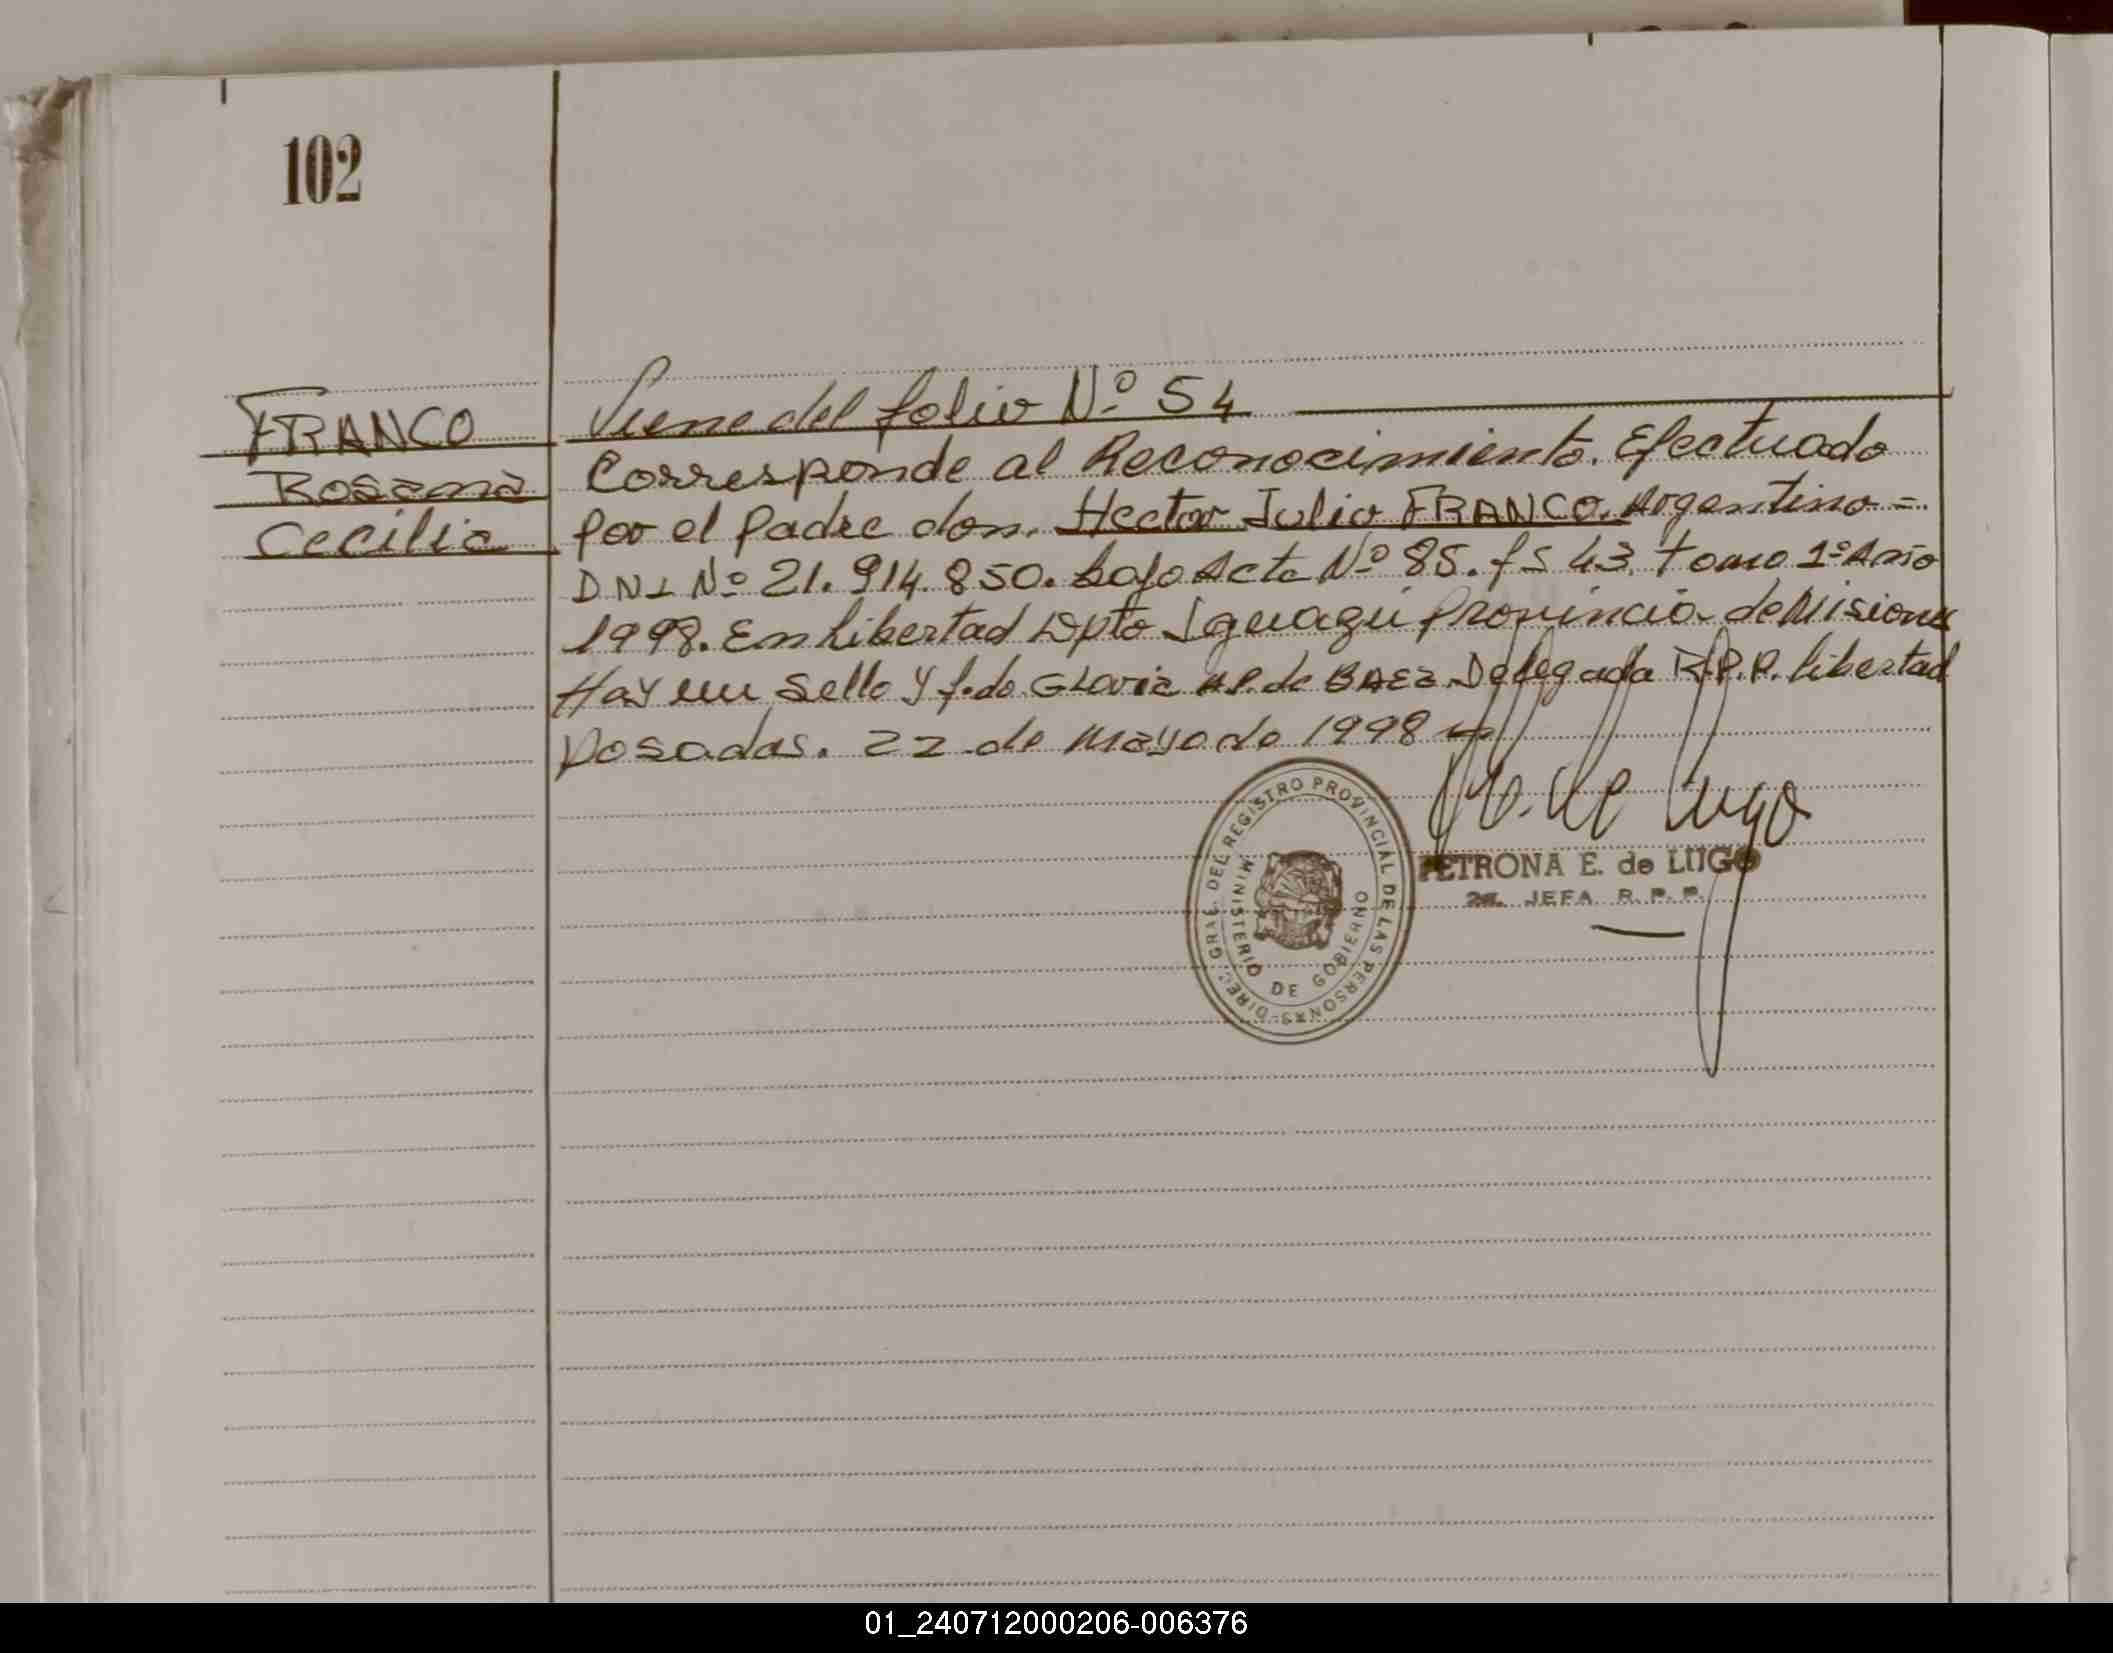 102
FRANCO
Rosana
Cecilia
Viene del folio Nº 54
Corresponde al Reconocimiento. Efectuado
por el padre don. Hector Julio FRANCO. Argentino =
DNI Nº 21.914.850. bajo Acta Nº 85. fs 43. tomo 1º Año
1998. En Libertad Dpto Iguazú Provincia de Misiones
Hay un Sello y f.do. Gloria de BAEZ Delegada R.P.P. Libertad
Posadas. 22 de Mayo de 1998
DIREC. GRAL. DEL REGISTRO PROVINCIAL DE LAS PERSONAS
MINISTERIO DE GOBIERNO
de Lugo
PETRONA E. de LUGO
JEFA R. P. P.
01_240712000206-006376